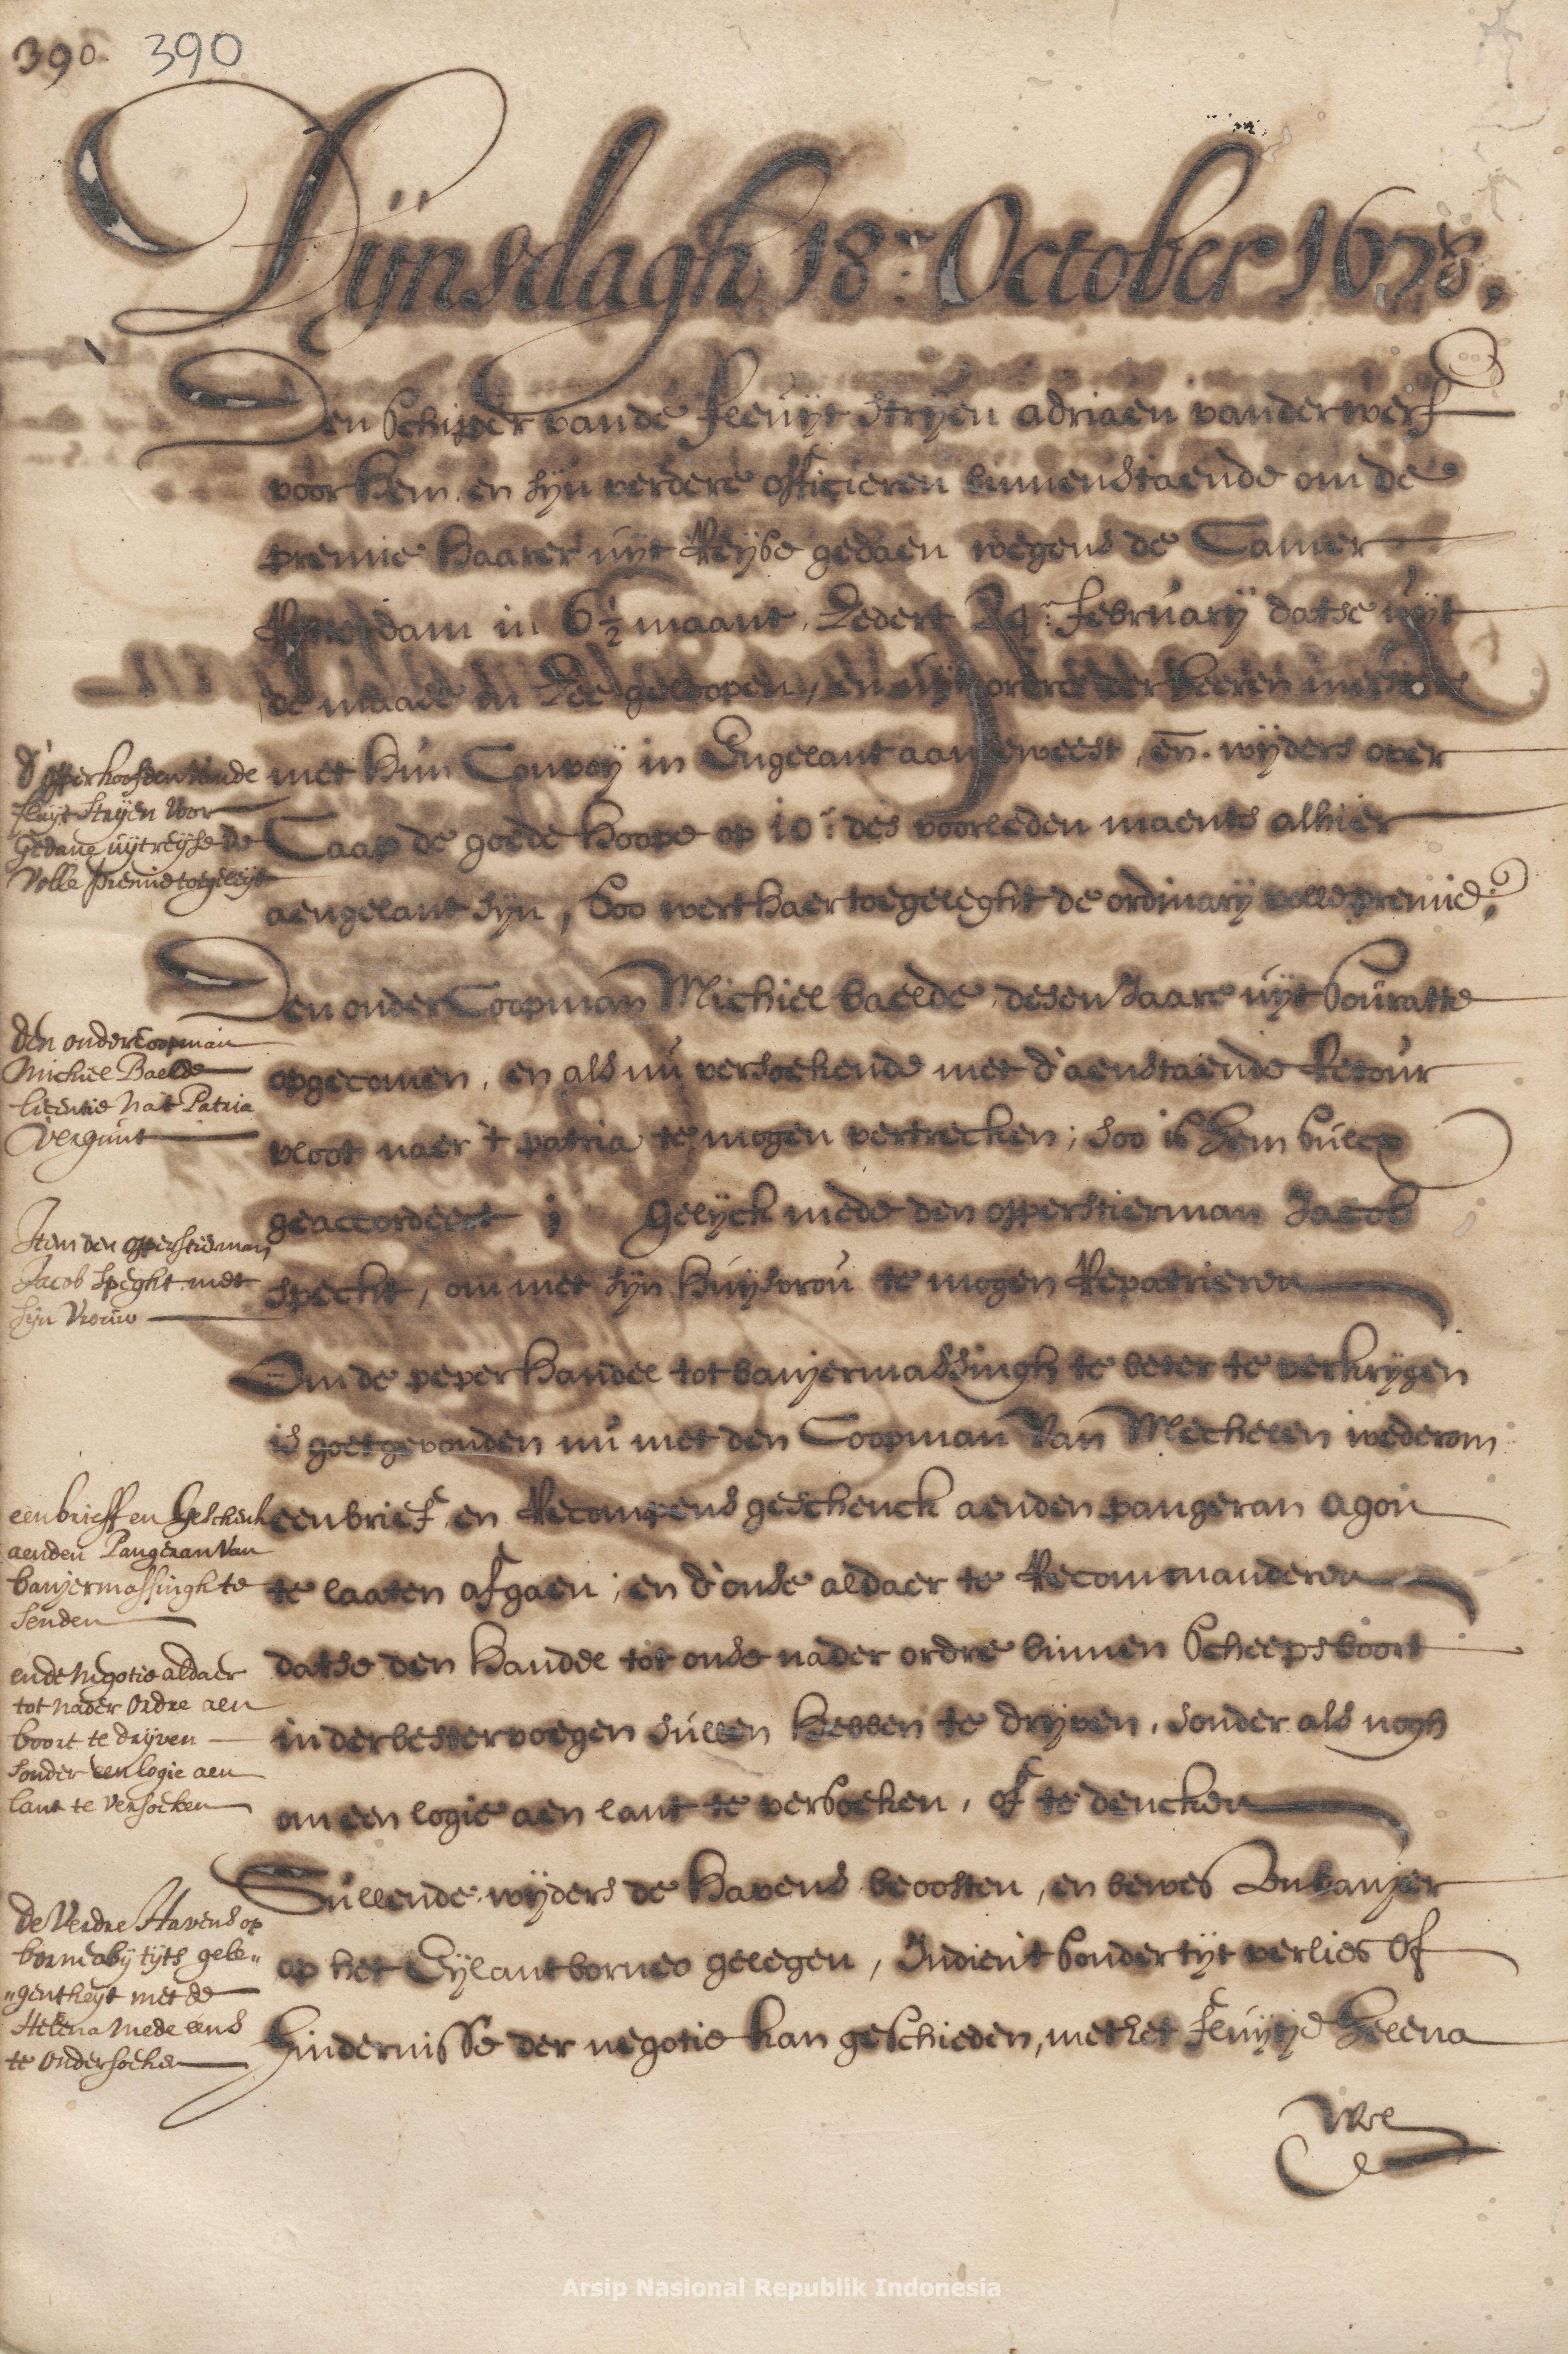 390. 390
Dijnsdagh 18en: October 1678,
Den Schipper vande fleuijt Strijen adriaen vander werf
voor hem en sijn verdere officieren binnenstaende om de
premie haarer uijt Reijse gedaen wegens de Camer
in 6½ maant, Zedert 24: februarij datse uijt
de maase in Zee geloopen, en uijt ordre der heeren
met hun Convoij in Engelant aangeweest, en. wijders over
Caap de goede hoope op 10: des voorleden maents alhier
aengelant sijn, soo wert haer toegeleght de ordinarij volle premie;
d'opperhoofden vande
fluijt Strijen voor
gedane uijtreijse de
volle premie toegeleijt
Den onder Coopman Michiel baelde, desen Jaare uijt Souratte
opgecomen, en als nu versoekende met d'aenstaende Retour
vloot naer 't patria te mogen vertrecken; soo is hem sulcx
geaccordeert; Gelijck mede den opperstierman Jacob
specht, om met sijn huijsvrou te mogen Repatrieren
den ondercoopman
Michiel Baelde
licentie na't Patria
vergunt
Item den opperstierman
Jacob Speght met
sijn vrouw
Om de peper handel tot banjermassingh te beter te verkrijgen
is goetgevonden nu met den Coopman Van Mechelen wederom
een brief en Recompens geschenck aenden pangeran agon
te laaten afgaen; en d'onse aldaer te Recommanderen
datse den handel tot onse nader ordre binnen Scheepsboort
in der bester voegen sullen hebben te drijven, sonder als nogh
om een logie aen lant te versoeken, of te dencken
een brieff en geschenk
aenden Pangeran van
banjermassingh te
senden
ende negotie aldaer
tot nader ordre aen
boort te drijven
sonder een logie aen
lant te versoeken
Sullende wijders de havens beoosten, en bewes
op het Eijlant borneo gelegen, Indien't sonder tijt verlies of
hindernisse der negotie kan geschieden, met het fluijtje helena
de verdre Havens op
borneo bij tijts gele„
„gentheijt met de
Helena mede eens
te ondersoeken